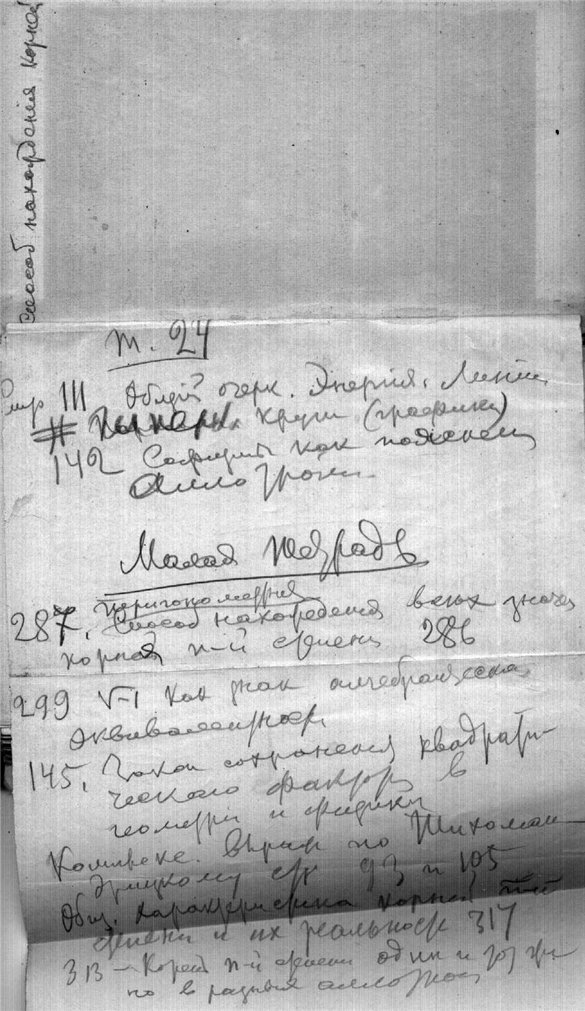 Способ нахождения корней
т. 24
стр 111 Общий очерк. Энергия. Линии
круги (графики)
142 как пояснен
Малая тетрадь
Тригонометрия
287. Способ нахождения всех знач
корней n-й степени 286
299 √-1 как знак алгебраическа
эквивалентност
145. Закон сохранения квадрати-
ческого фактора в
геометрии и физики
Комплекс. выраж по
стр 93 и 105
Общ. характеристика корней n-й
степени и их реальност 317
313 – Корень n-й степени один и тот же
но в разных